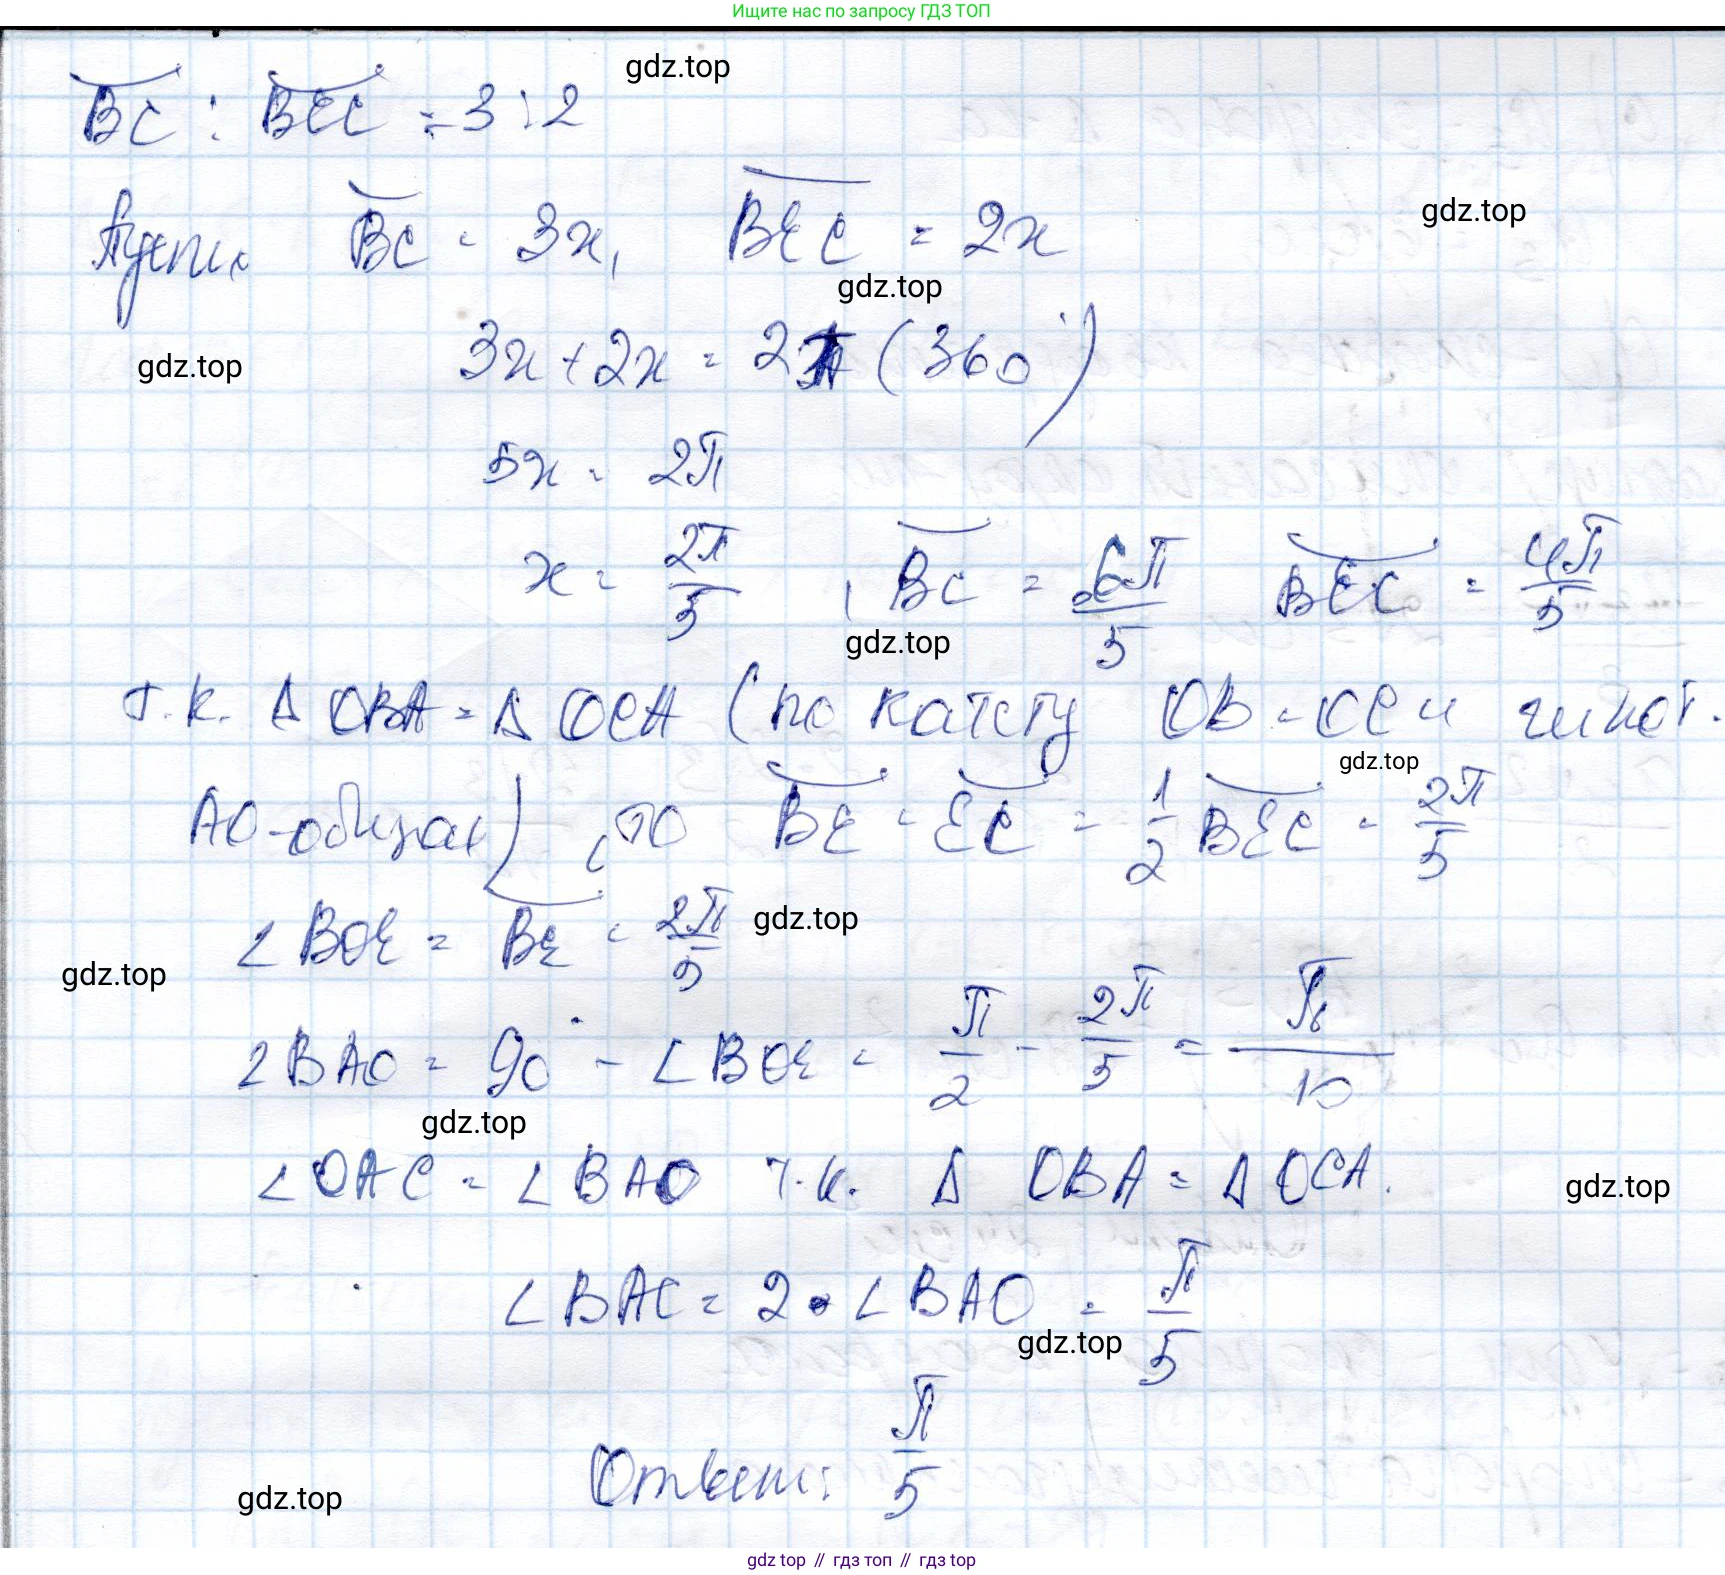 Ищите нас по запросу ГДЗ ТОП
gdz.top
BC : BEC = 3 : 2
gdz.top
Пусть BC = 3x, BEC = 2x
gdz.top
gdz.top
3x + 2x = 2π (360°)
5x = 2π
x = 2π/5, BC = 6π/5 BEC = 4π/5
gdz.top
т.к. Δ OBA = Δ OCA (по катету OB = OC и гипот.
gdz.top
AO - общая), то BE = EC = 1/2 BEC = 2π/5
∠BOE = BE = 2π/5
gdz.top
gdz.top
∠BAO = 90° - ∠BOE = π/2 - 2π/5 = π/10
gdz.top
∠OAC = ∠BAO т.к. Δ OBA = Δ OCA.
gdz.top
∠BAC = 2 · ∠BAO = π/5
gdz.top
Ответ: π/5
gdz.top
gdz top // гдз топ // гдз top